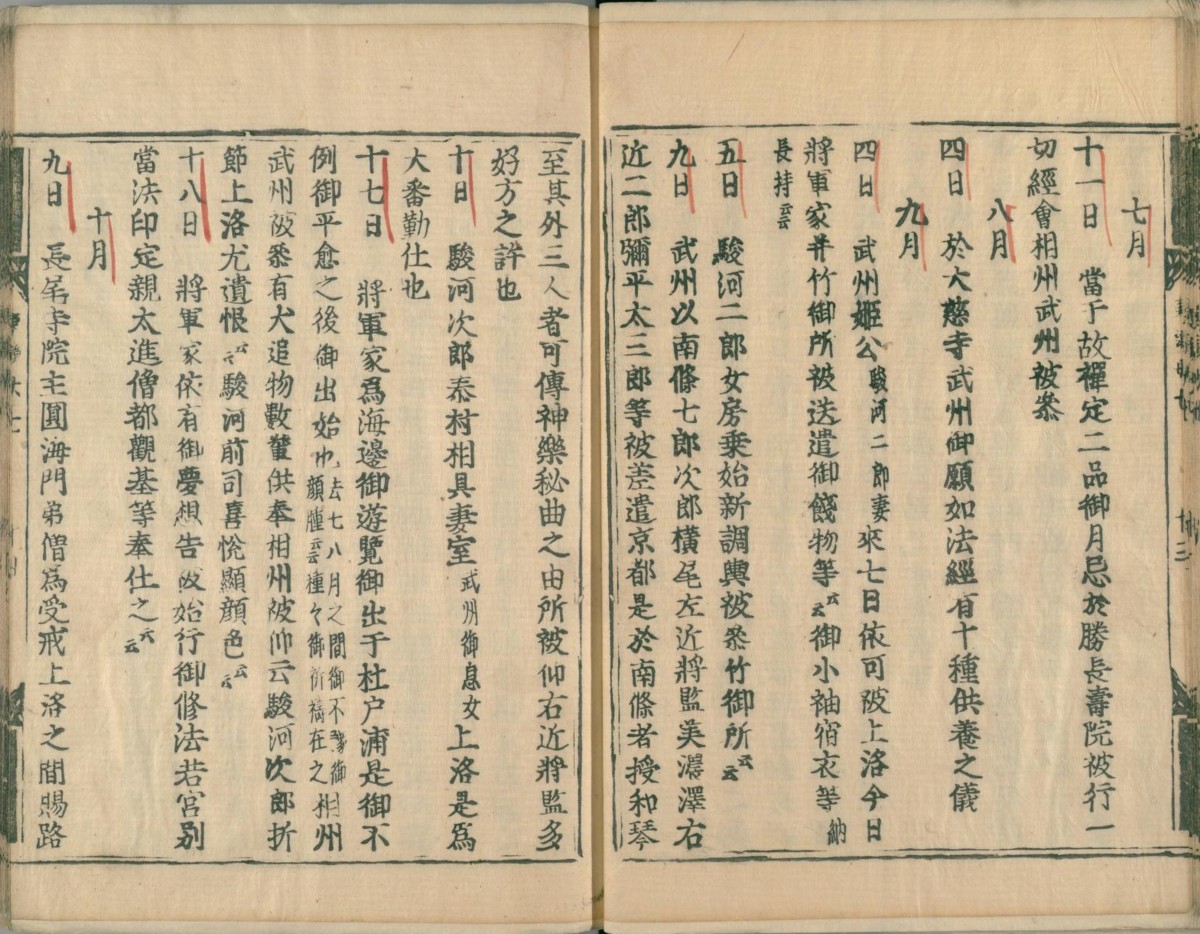 七月
十一日　當于故禪定二品御月忌於勝長壽院被行一
切經會相州武州被參
八月
四日　於大慈寺武州御願如法經有十種供養之儀
九月
四日　武州姬公駿河二郎妻來七日依可被上洛今日
將軍家并竹御所被送遣御餞物等云云御小袖宿衣等納
長持云云
五日　駿河二郎女房乘始新調輿被參竹御所云云
九日　武州以南條七郎次郎橫尾左近將監美濃澤右
近二郎彌平太三郎等被差遣京都是於南條者授和琴
至其外三人者可傳神樂秘曲之由所被仰右近將監多
好方之許也
十日　駿河次郎泰村相具妻室武州御息女上洛是爲
大番勤仕也
十七日　將軍家爲海邊御遊覽御出于杜戶浦是御不
例御平愈之後御出始也去七八月之間御不豫御顔腫云云種々御祈禱在之相州
武州被參有犬追物數輩供奉相州被仰云駿河次郎折
節上洛尤遺恨云云駿河前司喜悅顯顔色云云
十八日　將軍家依有御夢想告被始行御修法若宮別
當法印定親大進僧都觀基等奉仕之云云
十月
九日　長尾寺院主圓海門弟僧爲受戒上洛之間賜路